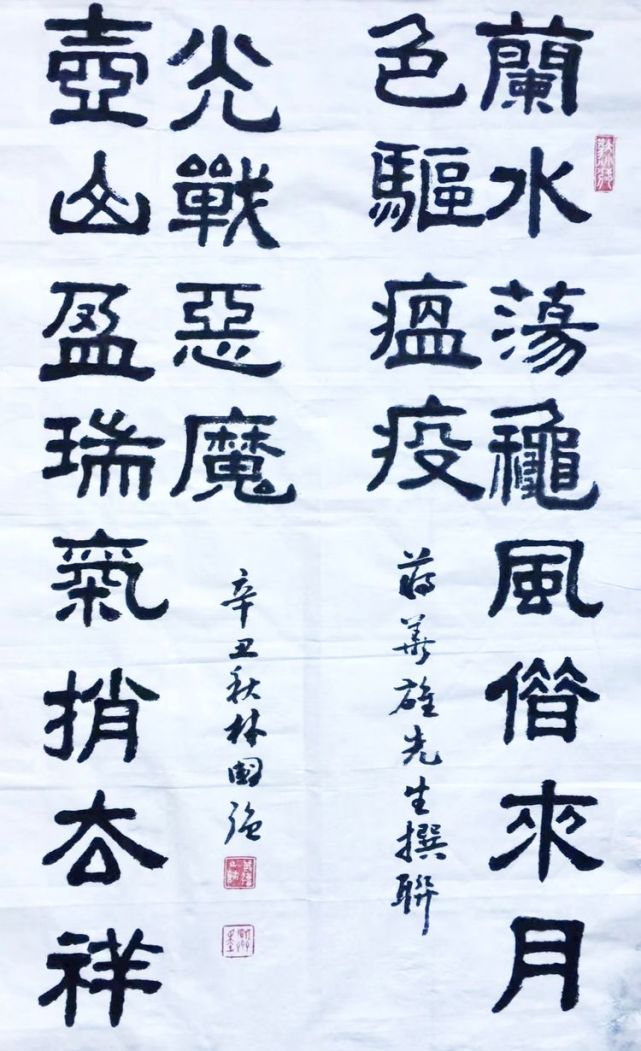 蘭水蕩龝風借來月
色驅瘟疫
蔣華雄先生撰聯
壺山盈瑞氣捎去祥
光戰惡魔
辛丑秋林國強